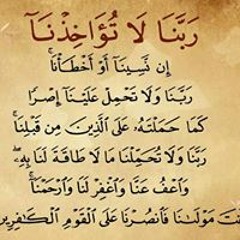 رَبَّنَا لَا تُؤَاخِذْنَآ
إِن نَّسِينَآ أَوْ أَخْطَأْنَا ۚ
رَبَّنَا وَلَا تَحْمِلْ عَلَيْنَآ إِصْرًا
كَمَا حَمَلْتَهُۥ عَلَى ٱلَّذِينَ مِن قَبْلِنَا ۚ
رَبَّنَا وَلَا تُحَمِّلْنَا مَا لَا طَاقَةَ لَنَا بِهِۦ ۖ
وَٱعْفُ عَنَّا وَٱغْفِرْ لَنَا وَٱرْحَمْنَآ ۚ
مَوْلَىٰنَا فَٱنصُرْنَا عَلَى ٱلْقَوْمِ ٱلْكَـٰفِرِينَ